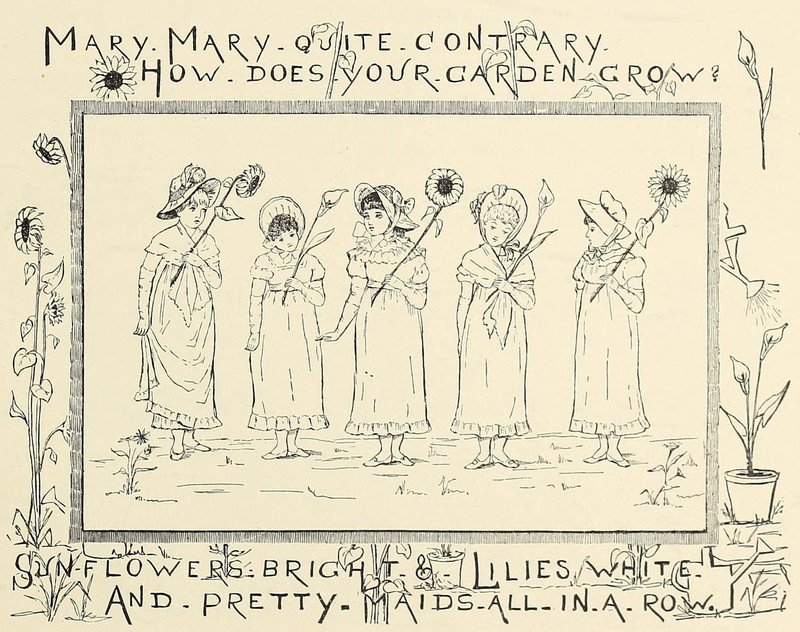 MARY. MARY. QUITE. CONTRARY.
HOW. DOES. YOUR. GARDEN. GROW?
SUNFLOWERS. BRIGHT. & LILIES. WHITE.
AND. PRETTY. MAIDS. ALL. IN. A. ROW.